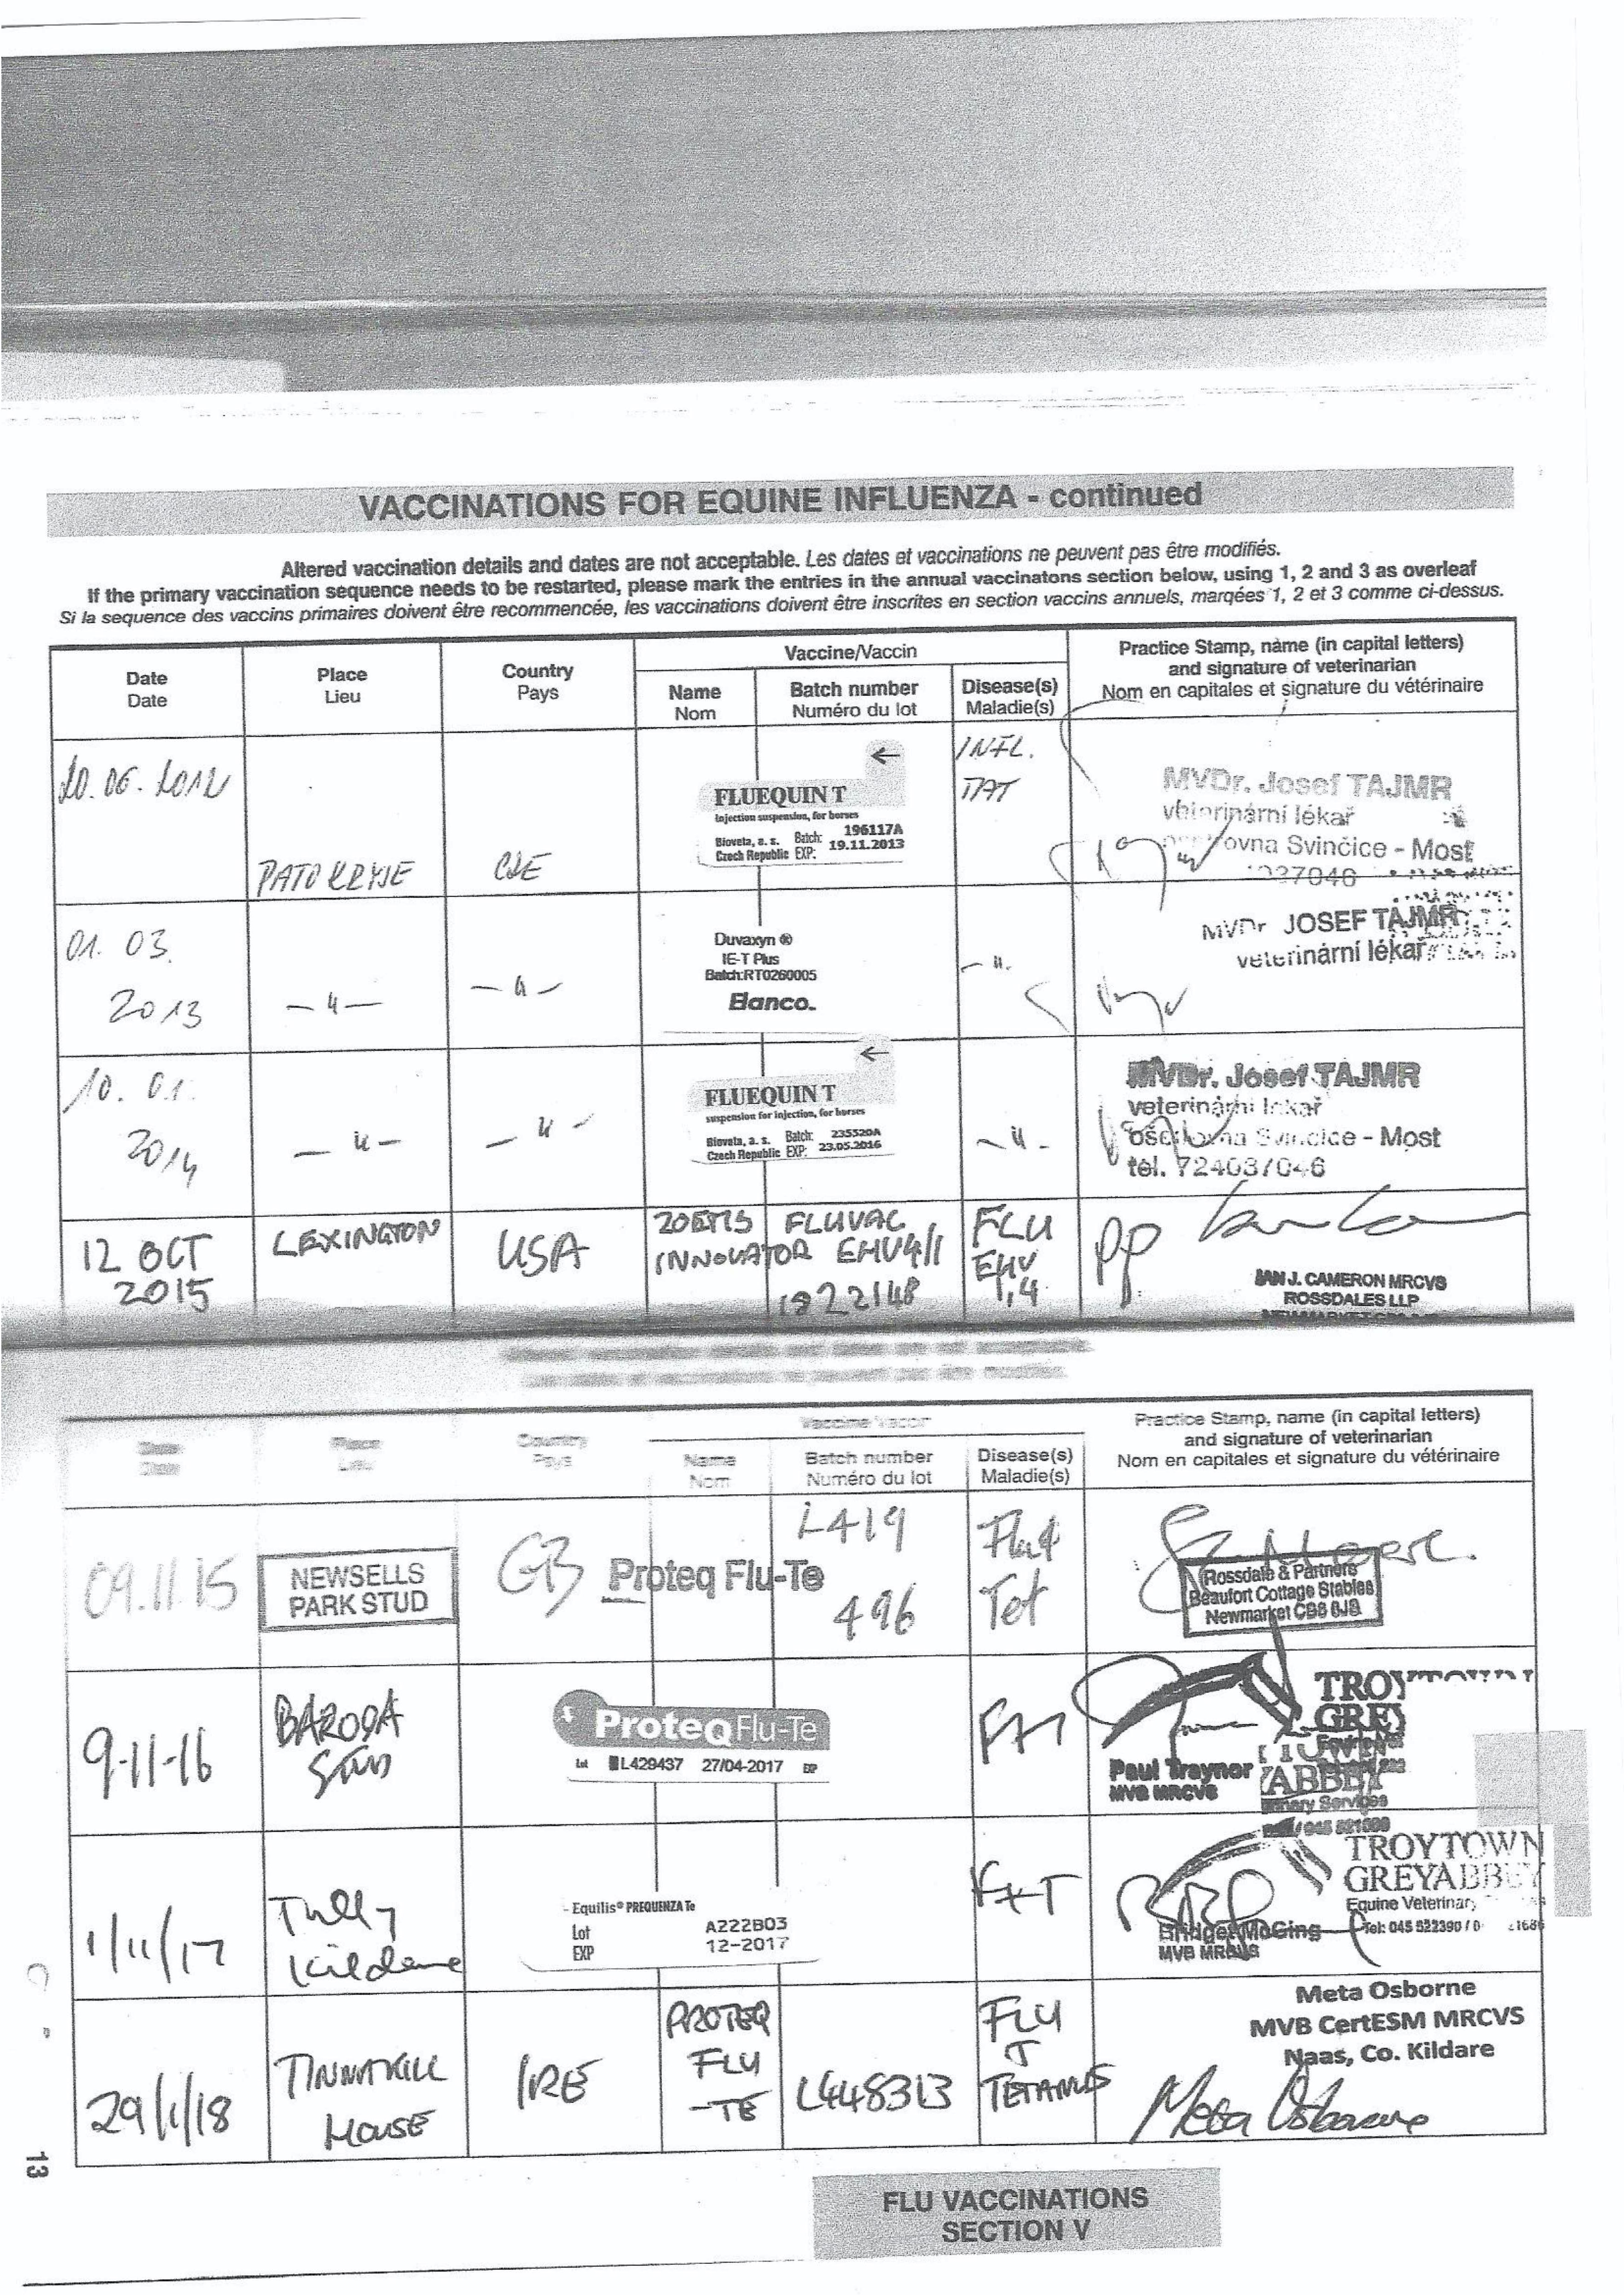 VACCINATIONS FOR EQUINE INFLUENZA - continued
Altered vaccination details and dates are not acceptable. Les dates et vaccinations ne peuvent pas être modifiés.
If the primary vaccination sequence needs to be restarted, please mark the entries in the annual vaccinatons section below, using 1, 2 and 3 as overleaf
Si la sequence des vaccins primaires doivent être recommencée, les vaccinations doivent être inscrites en section vaccins annuels, marqées 1, 2 et 3 comme ci-dessus.
Date
Date
Place
Lieu
Country
Pays
Vaccine/Vaccin
Name
Nom
Batch number
Numéro du lot
Disease(s)
Maladie(s)
Practice Stamp, name (in capital letters)
and signature of veterinarian
Nom en capitales et signature du vétérinaire
20.06.2012
CZE
FLUEQUIN T
Injection suspension, for horses
Bioveta, a. s. Batch: 196117A
Czech Republic EXP: 19.11.2013
INFL.
MVDr. Josef TAJMR
veterinární lékař
Svinčice - Most
01. 03.
2013
— " —
— " —
Duvaxyn ®
IE-T Plus
Batch:RT0260005
Elanco
— " -
MVDr JOSEF TAJMR
veterinární lékař
10. 01.
2014
— " —
— " —
FLUEQUIN T
suspension for injection, for horses
Bioveta, a. s. Batch: 235520A
Czech Republic EXP: 23.05.2016
— " -
MVDr. Josef TAJMR
veterinární lékař
Svinčice - Most
tel. 724037046
12 OCT
2015
LEXINGTON
USA
ZOETIS FLUVAC
INNOVATOR EHV4/1
1922148
FLU
EHV
1,4
pp
IAN J. CAMERON MRCVS
ROSSDALES LLP
Vaccine/Vaccin
Date
Date
Place
Lieu
Country
Pays
Name
Nom
Batch number
Numéro du lot
Disease(s)
Maladie(s)
Practice Stamp, name (in capital letters)
and signature of veterinarian
Nom en capitales et signature du vétérinaire
09.11.15
NEWSELLS
PARK STUD
GB
Proteq Flu-Te
L419
496
Flu +
Tet
Rossdale & Partners
Beaufort Cottage Stables
Newmarket CB8 8JS
9-11-16
BARODA
Stud
ProteqFlu-Te
Lot L429437 27/04-2017 EXP
F+T
Paul Traynor
MVB MRCVS
TROYTOWN
GREY
ABBEY
1/11/17
Tully
Kildare
Equilis® PREQUENZA Te
Lot A222B03
EXP 12-2017
F+T
TROYTOWN
GREYABBEY
Equine Veterinary
Tel: 045 522390 / 0
Bridget McGing
MVB MRCVS
29/1/18
TINNAKILL
HOUSE
IRE
PROTEQ
FLU
-TE
L448313
FLU
+
TETANUS
Meta Osborne
MVB CertESM MRCVS
Naas, Co. Kildare
Meta Osborne
13
FLU VACCINATIONS
SECTION V